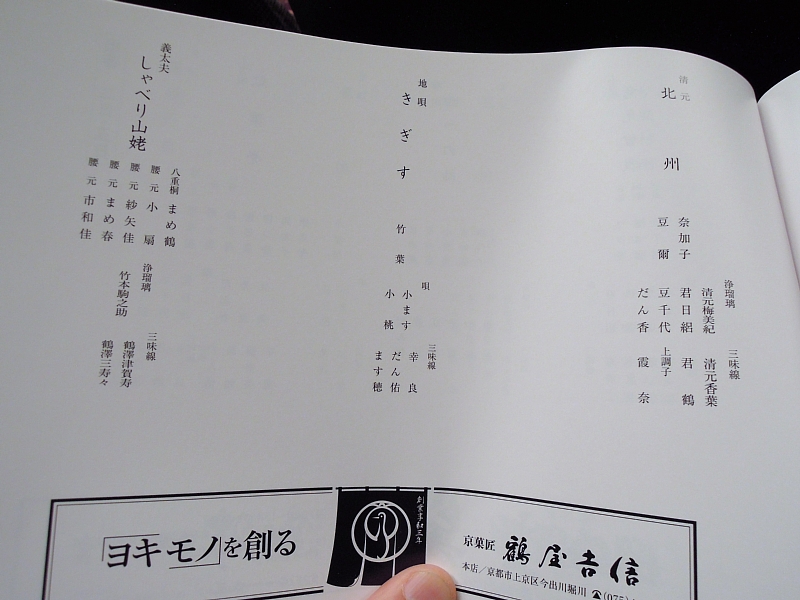 清元
北州
奈加子
豆爾
浄瑠璃
清元梅美紀
君日絽
豆千代
だん香
三味線
清元香葉
君鶴
上調子
霞奈
地唄
きぎす
竹葉
唄
小ます
小桃
三味線
幸良
だん佑
ます穂
義太夫
しゃべり山姥
八重桐 まめ鶴
腰元 小扇
腰元 紗矢佳
腰元 まめ春
腰元 市和佳
浄瑠璃
竹本駒之助
三味線
鶴澤津賀寿
鶴澤三寿々
「ヨキモノ」を創る
創業享和三年
京菓匠 鶴屋吉信
本店/京都市上京区今出川堀川 ☎(075)